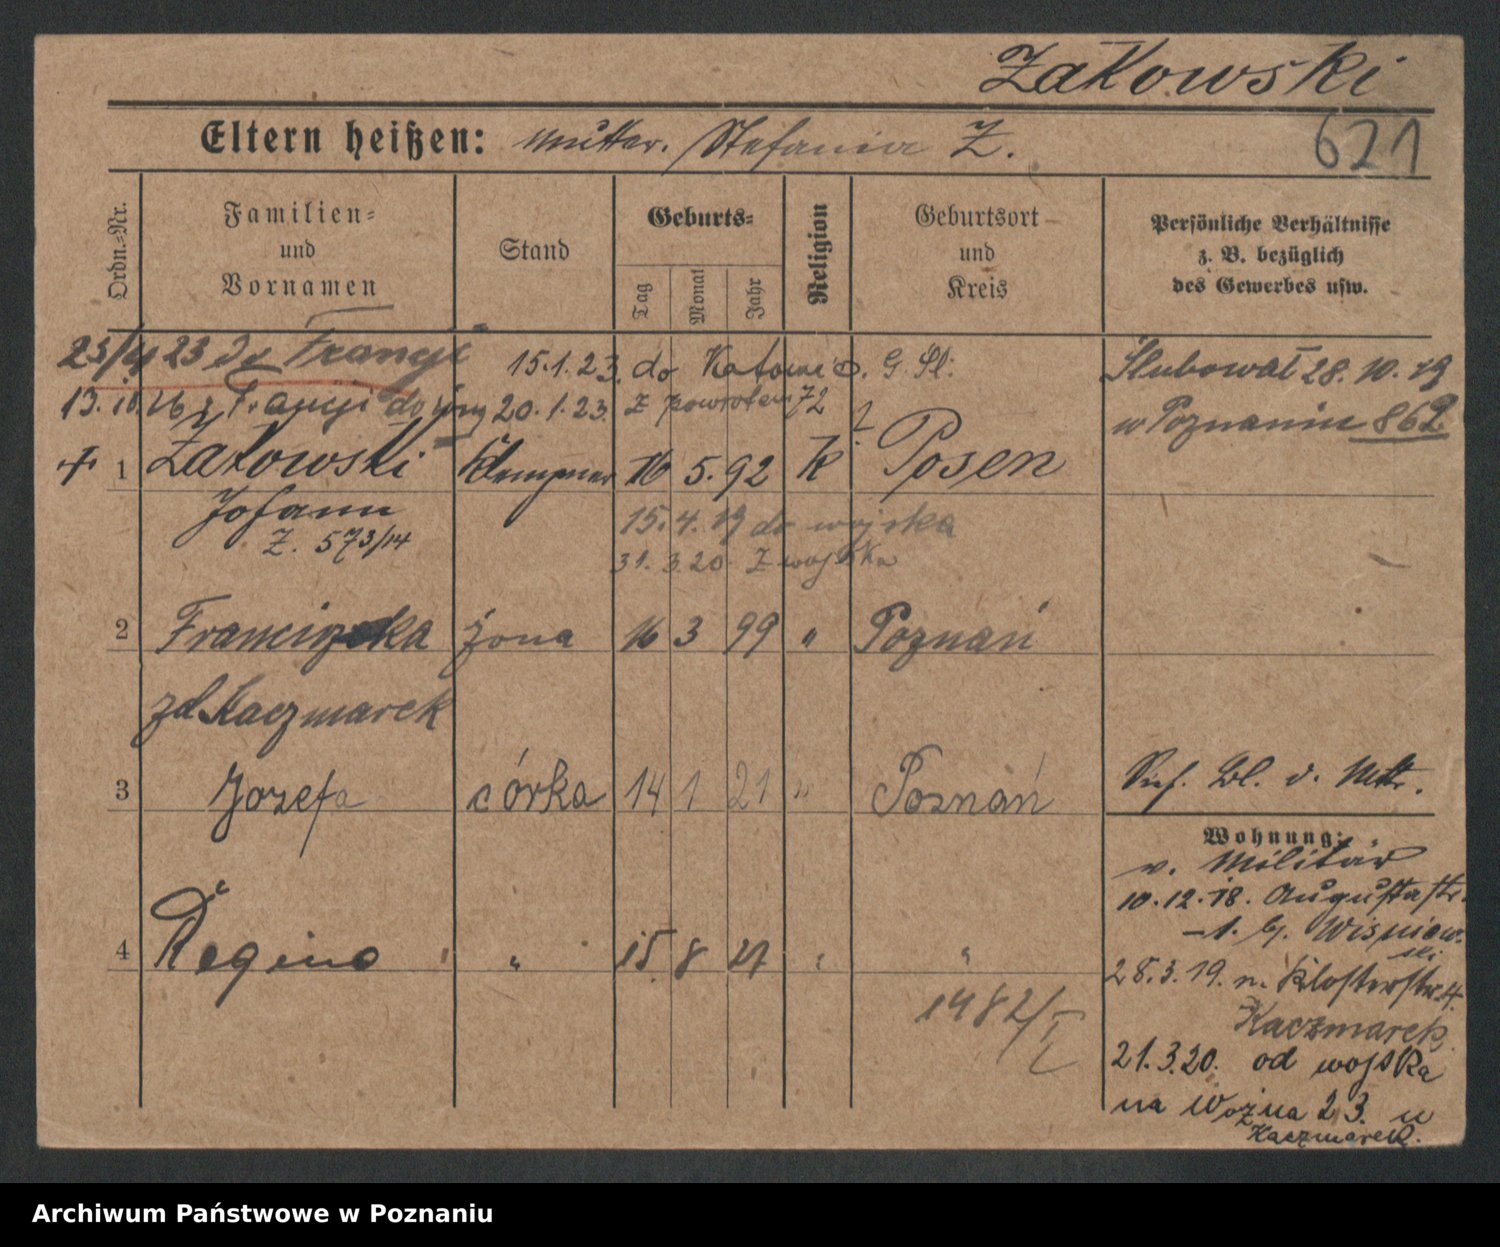 Żakowski
Eltern heißen: Mutter. Stefania Z.
621
Ordn.-Nr.
Familien-
und
Vornamen
Stand
Geburts-
Tag
Monat
Jahr
Religion
Geburtsort
und
Kreis
Persönliche Verhältnisse
z. B. bezüglich
des Gewerbes usw.
23/4 23 do Francji
15.1.23. do Katowic G. Sl.
Slubował 28. 10. 19
w Poznaniu 862
13. 10. 26 z Francji do żony
20. 1. 23. z powrotem 72
1 Żakowski Klempner 16 5. 92 K Posen
Johann
Z. 573/14
15. 4. 19 do wojska
31. 3. 20 z wojska
2 Franciszka żona 16 3 99 " Poznań
zd. Kaczmarek
3 Jozefa córka 14 1 21 " Poznań
Bl. d. Mttr.
Wohnung:
v. Militär
10.12.18. Augustastr.
1. b. Wisniew-
ski
4 Regina " 15. 8 " "
28.3.19. n. Klosterstr. 4.
Kaczmarek
1482/I
21.3.20. od wojska
na Woźna 23. u
Kaczmarek.
Archiwum Państwowe w Poznaniu